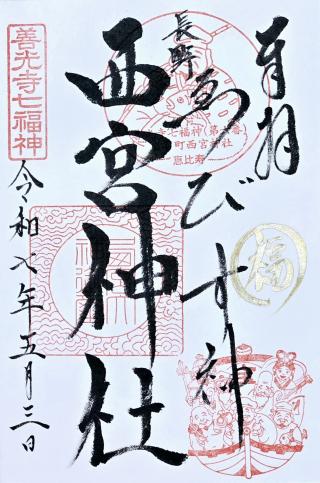 奉拝
長野
ゑびす神
西宮神社
令和七年五月三日
善光寺七福神
七福神(第六番
町西宮神社
恵比寿
福